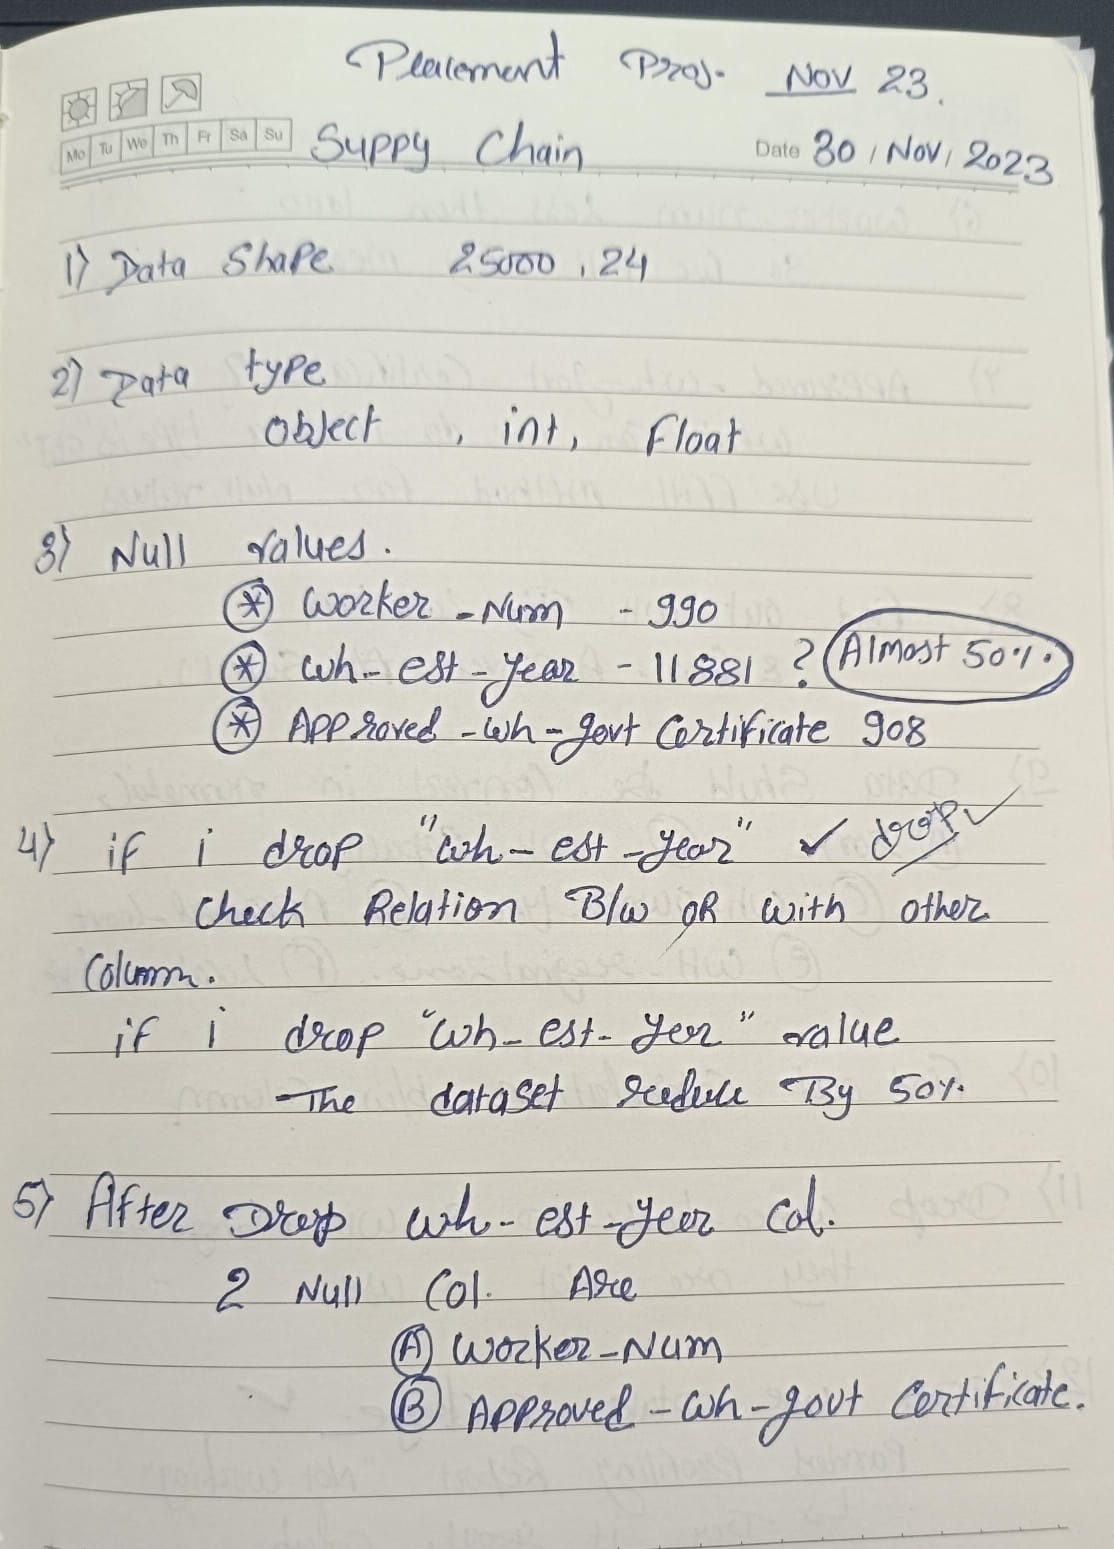 Placement Proj. Nov 23.
Mo Tu We Th Fr Sa Su
Suppy Chain Date 30 / Nov / 2023
1) Data Shape 25000 , 24
2) Data type
Object , int, Float
3) Null values.
* Worker - Num - 990
* wh - est - year - 11881 ? Almost 50%.
* APProved - wh - govt Certificate 908
4) if i drop "wh - est - year" ✓ drop ✓
Check Relation B/w OR with other
Column.
if i drop "wh - est - yer" value
The dataset reduce By 50%.
5) After Drop wh - est - year Col.
2 Null Col. Are
A Worker - Num
B APProved - wh - govt Certificate.